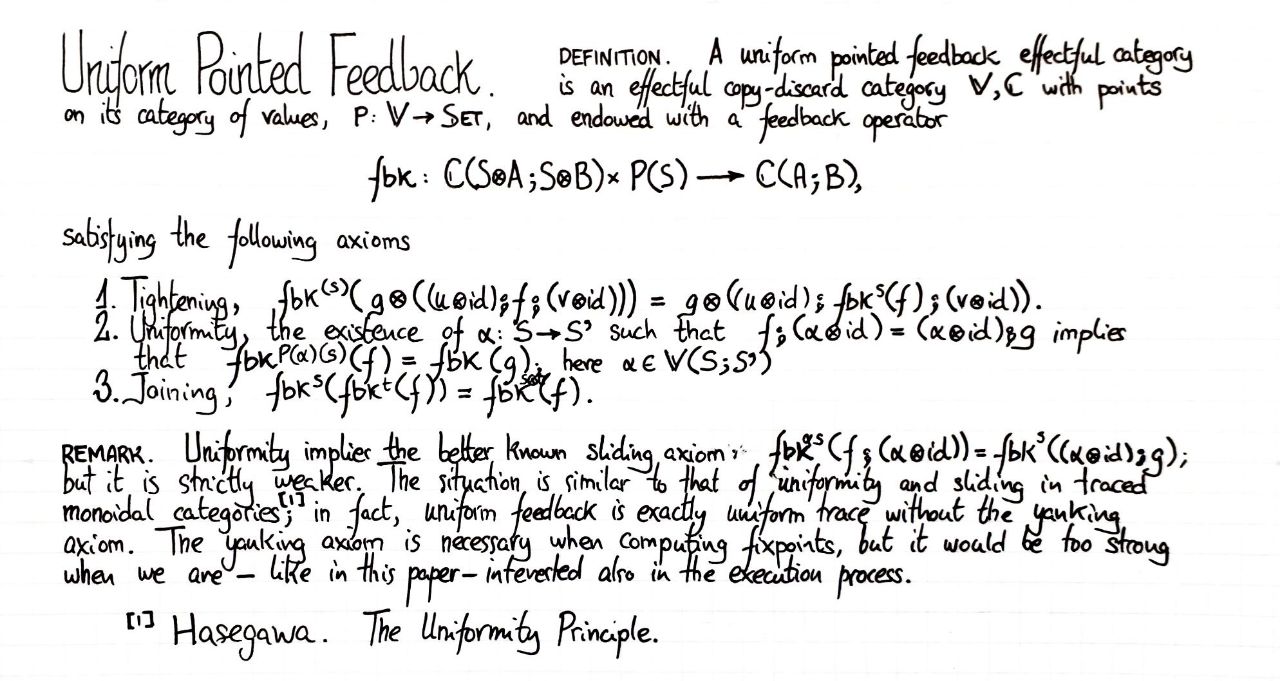 Uniform Pointed Feedback. DEFINITION. A uniform pointed feedback effectful category
is an effectful copy-discard category 𝕍, ℂ with points
on its category of values, P: 𝕍 → SET, and endowed with a feedback operator
fbk: ℂ(S⊗A;S⊗B) × P(S) ⟶ ℂ(A;B),
satisfying the following axioms
1. Tightening, fbk⁽ˢ⁾(g⊗((u⊗id)⨾f⨾(v⊗id))) = g⊗(u⊗id)⨾ fbkˢ(f)⨾(v⊗id)).
2. Uniformity, the existence of α: S→S' such that f⨾(α⊗id) = (α⊗id)⨾g implies
that fbk^P(α)(s)(f) = fbk (g); here α ∈ 𝕍(S;S')
3. Joining, fbkˢ(fbkᵗ(f)) = fbk (f).
REMARK. Uniformity implies the better known sliding axiom, fbk^αs(f⨾(α⊗id)) = fbkˢ((α⊗id)⨾g);
but it is strictly weaker. The situation is similar to that of uniformity and sliding in traced
monoidal categories;[1] in fact, uniform feedback is exactly uniform trace without the yanking
axiom. The yanking axiom is necessary when computing fixpoints, but it would be too strong
when we are – like in this paper – interested also in the execution process.
[1] Hasegawa. The Uniformity Principle.